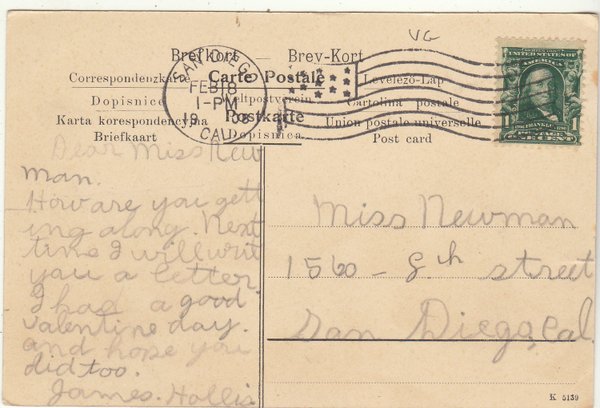 VG
Brefkort Brev-Kort
Correspondenzkarte Carte Postale Levelező-Lap
Dopisnice Weltpostverein Cartolina postale
Karta korespondencyjna Postkarte Union postale universelle
Briefkaart Dopisnica Post card
SAN DIEGO
FEB 18
1-PM
CAL.
UNITED STATES OF AMERICA
FRANKLIN
POSTAGE
1 ONE CENT 1
Dear Miss New
man.
How are you gett
ing along. Next
time I will writ
you a letter.
I had a good
valentine day.
and hope you
did too.
James. Hollis
Miss Newman
1560 - 8th street
San Diego, Cal.
K 5139